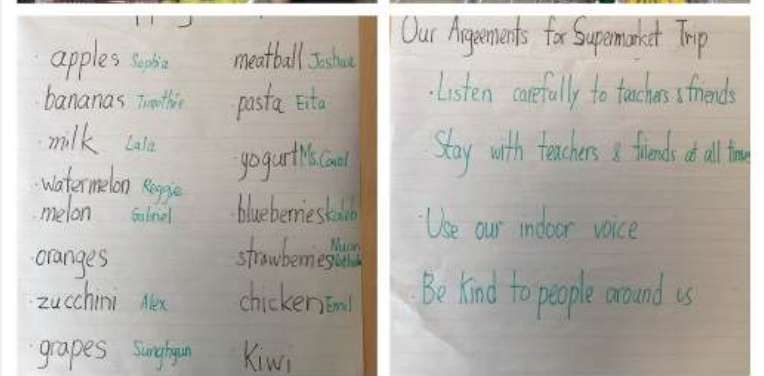 · apples Sophia
· bananas Timothie
· milk Lala
· watermelon Reggie
· melon Gabriel
· oranges
· zucchini Alex
· grapes Sunghyun
meatball Joshua
· pasta Eita
· yogurt Ms. Carol
· blueberries Kaleb
strawberries
· chicken Emil
Kiwi
Our Argeements for Supermarket Trip
· Listen carefully to teachers & friends
Stay with teachers & friends at all times
· Use our indoor voice
· Be Kind to people around us